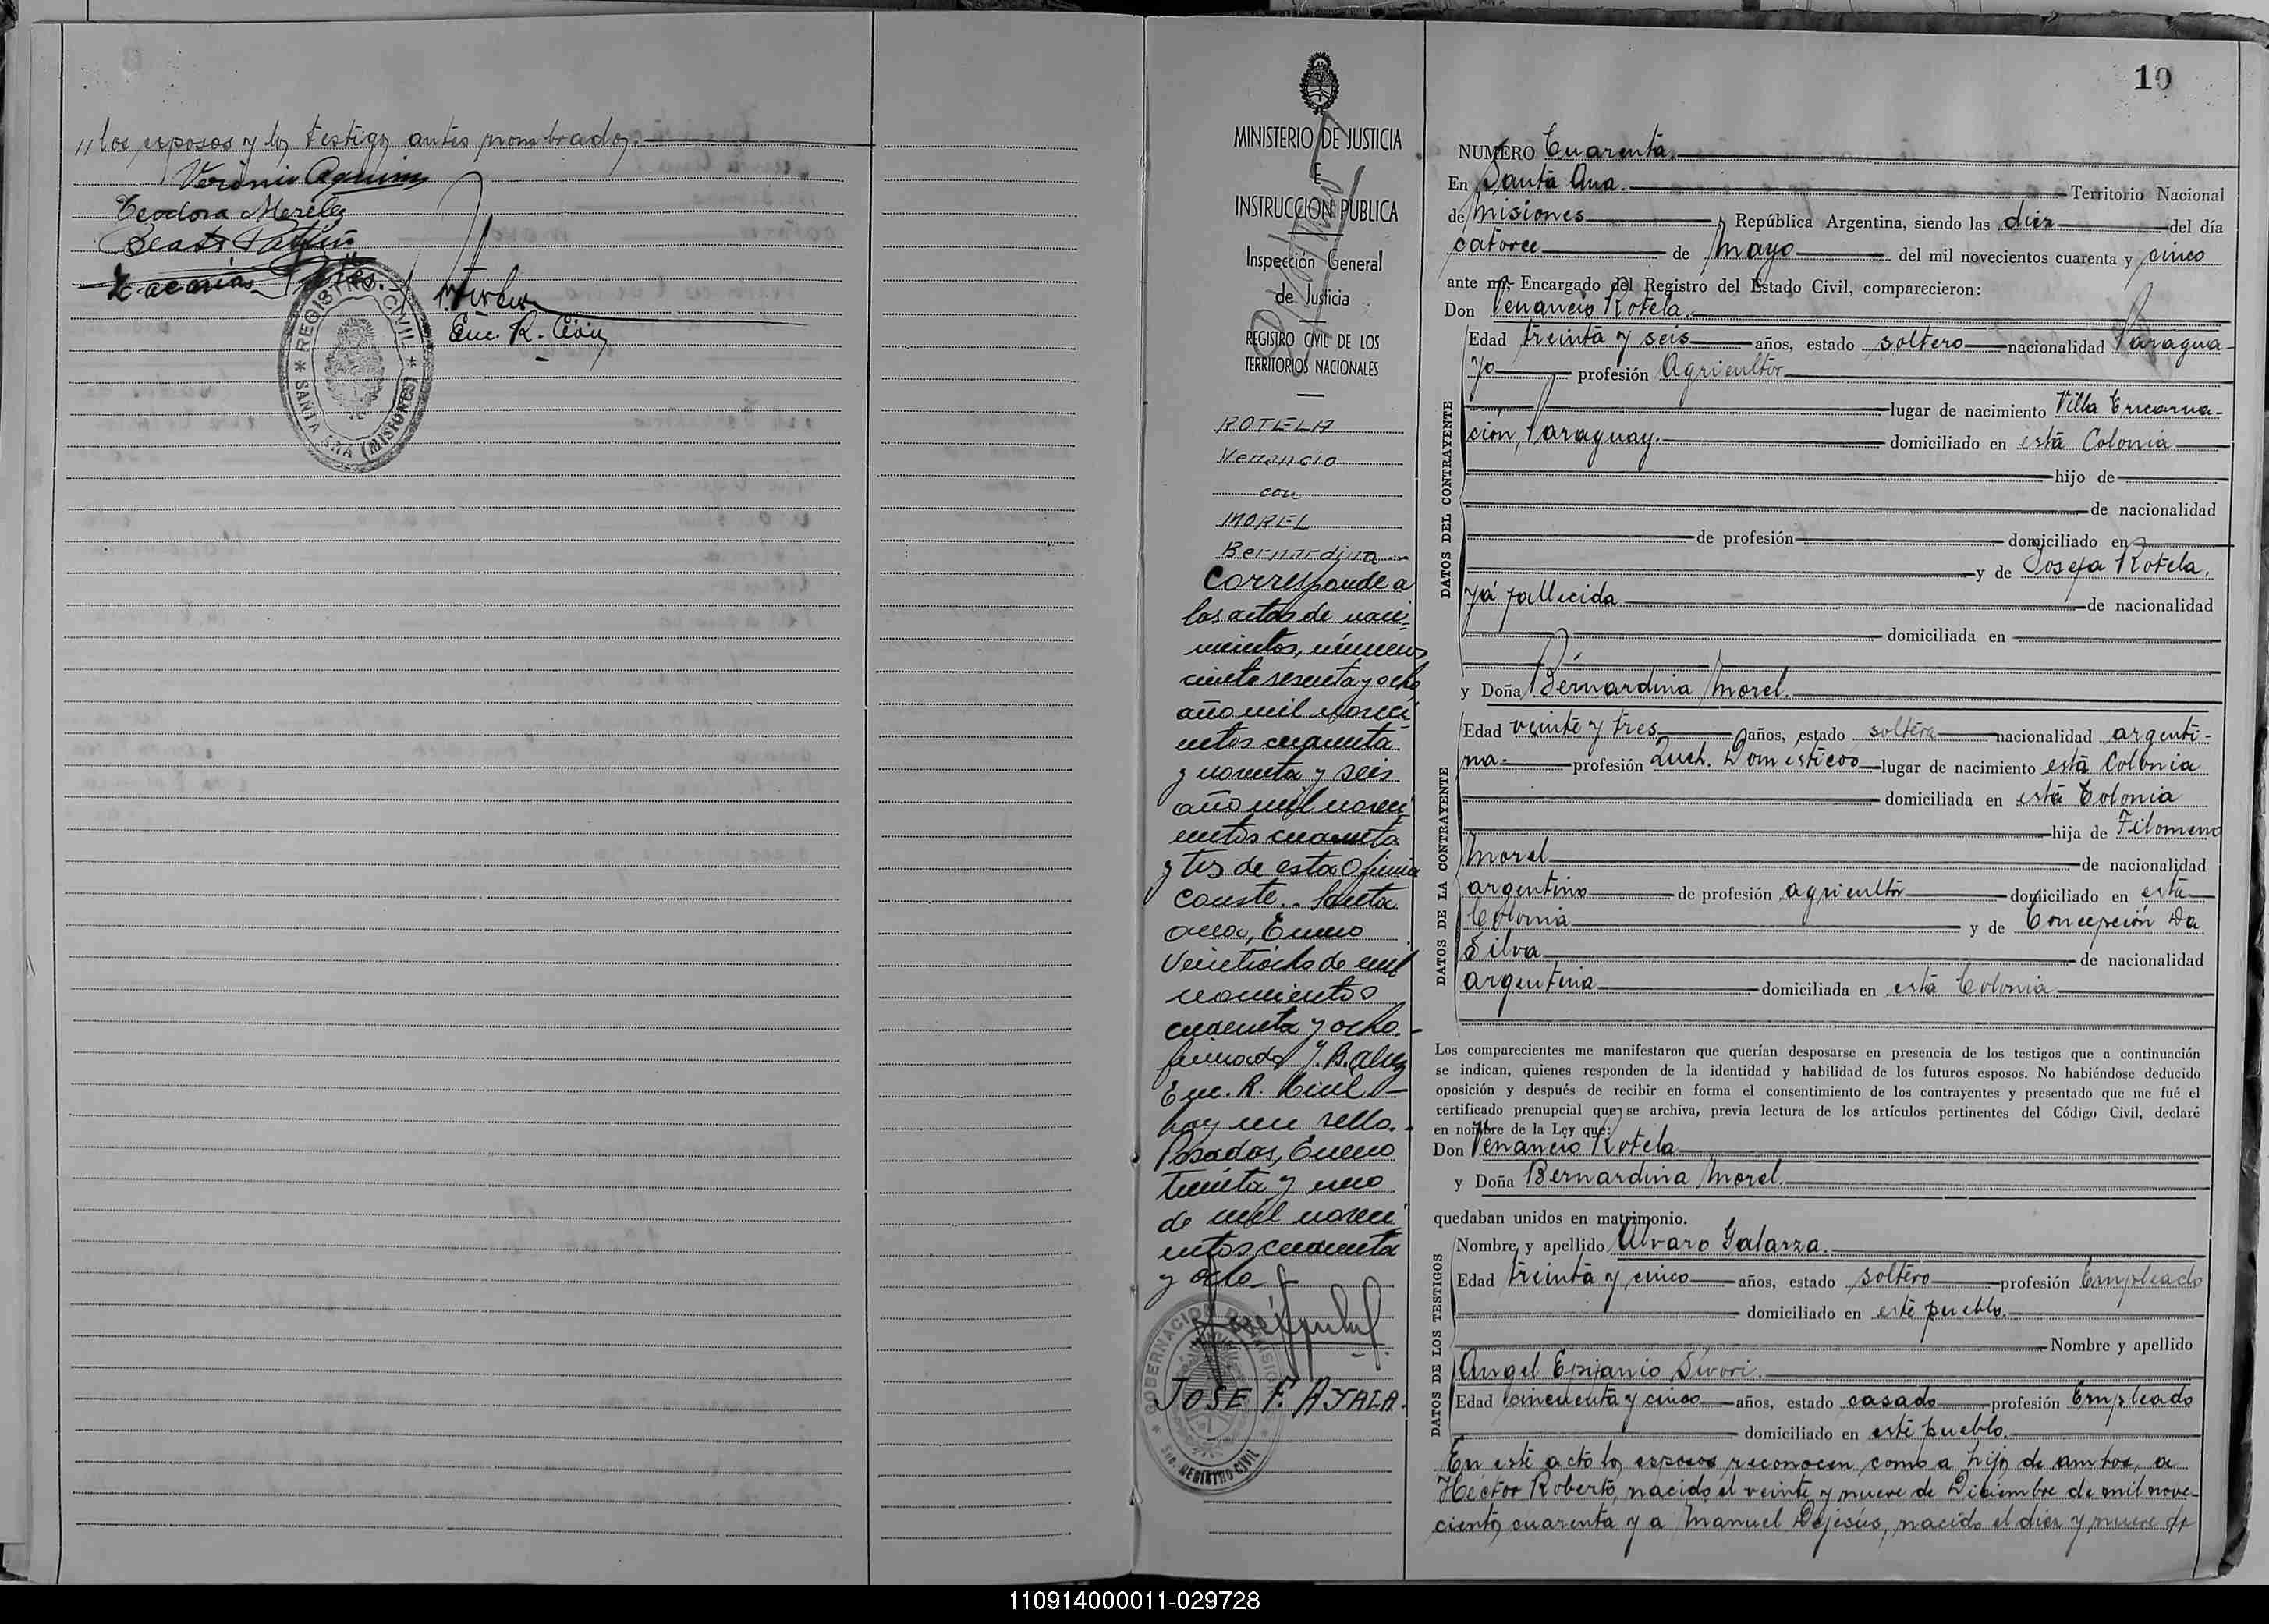 „los esposos y los testigos antes nombrados.
Teodora Mereles
REGISTRO CIVIL
SANTA ANA (MISIONES)
Enc. R. Civil
MINISTERIO DE JUSTICIA
E
INSTRUCCION PUBLICA
Inspección General
de Justicia
REGISTRO CIVIL DE LOS
TERRITORIOS NACIONALES
ROTELA
Venancio
con
MOREL
Bernardina
Corresponde a
las actas de naci-
mientos, números
ciento sesenta y ocho
año mil noveci
entos cuarenta
y noventa y seis
año mil noveci
entos cuarenta
y tres de esta Oficina
Conste.. Santa
Ana, Enero
veintiocho de mil
novecientos
cuarenta y ocho.-
firmado
Enc. R. Civil -
hay un sello.-
Posadas, Enero
treinta y uno
de mil noveci
entos cuarenta
y ocho
GOBERNACION DE MISIONES
JOSE F. AYALA.
REGISTRO CIVIL
10
NUMERO Cuarenta.
En Santa Ana. Territorio Nacional
de Misiones, República Argentina, siendo las diez del día
catorce de Mayo del mil novecientos cuarenta y cinco
ante mí, Encargado del Registro del Estado Civil, comparecieron:
Don Venancio Rotela.
DATOS DEL CONTRAYENTE
Edad treinta y seis años, estado soltero nacionalidad Paragua-
yo profesión Agricultor
lugar de nacimiento Villa Encarna-
ción, Paraguay. domiciliado en está Colonia
hijo de
de nacionalidad
de profesión domiciliado en
y de Josefa Rotela,
yá fallecida de nacionalidad
domiciliada en
y Doña Bernardina Morel.
DATOS DE LA CONTRAYENTE
Edad veinte y tres años, estado soltera nacionalidad argenti-
na- profesión Queh. Domésticos lugar de nacimiento está Colonia
domiciliada en está Colonia
hija de Filomeno
Morel de nacionalidad
argentino de profesión agricultor domiciliado en esta
Colonia y de Concepción Da
Silva de nacionalidad
argentina domiciliada en está Colonia.
Los comparecientes me manifestaron que querían desposarse en presencia de los testigos que a continuación
se indican, quienes responden de la identidad y habilidad de los futuros esposos. No habiéndose deducido
oposición y después de recibir en forma el consentimiento de los contrayentes y presentado que me fué el
certificado prenupcial que se archiva, previa lectura de los artículos pertinentes del Código Civil, declaré
en nombre de la Ley que:
Don Venancio Rotela
y Doña Bernardina Morel.
quedaban unidos en matrimonio.
DATOS DE LOS TESTIGOS
Nombre y apellido Alvaro Galarza.
Edad treinta y cinco años, estado soltero profesión Empleado
domiciliado en este pueblo.
Nombre y apellido
Angel Epifanio Sívori.
Edad cincuenta y cinco años, estado casado profesión Empleado
domiciliado en este pueblo.
En esté acto los esposos reconocen como a hijos de ambos, a
Hector Roberto, nacido el veinte y nueve de Diciembre de mil nove-
cientos cuarenta y a Manuel Dejesús, nacido el diez y nueve de
110914000011-029728